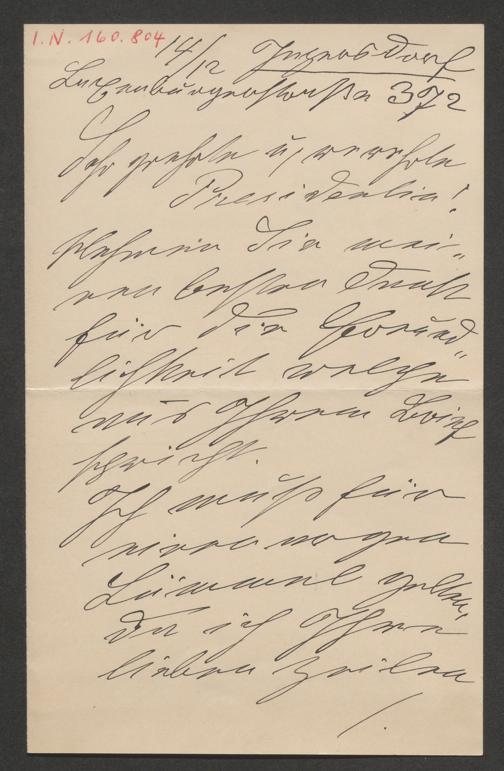 I.N. 160.804
14/12 Inzersdorf
Luxenburgerstraße 372
Sehr geehrte u, verehrte
Presidentin!
Nehmen Sie mei-
nen besten Dank
für die Freund
lichkeit welche
aus Ihrem Brief
spricht.
Ich muß für
einen argen
Lümmel gelten,
da ich Ihre
lieben Zeilen
/.